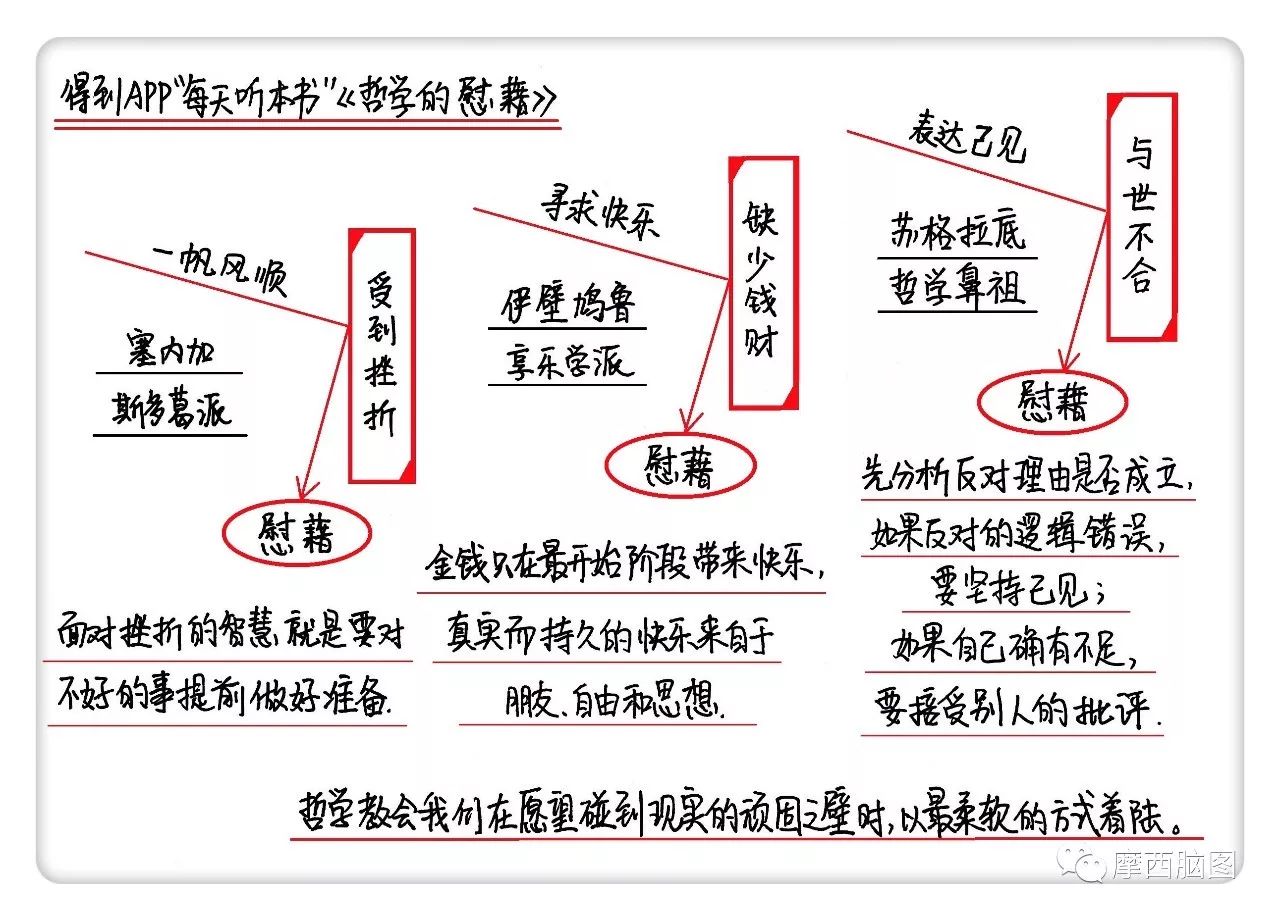 得到APP“每天听本书”《哲学的慰藉》
一帆风顺
受到挫折
塞内加
斯多葛派
慰藉
面对挫折的智慧就是要对
不好的事提前做好准备.
寻求快乐
缺少钱财
伊壁鸠鲁
享乐学派
慰藉
金钱只在最开始阶段带来快乐,
真实而持久的快乐来自于
朋友、自由和思想.
表达己见
与世不合
苏格拉底
哲学鼻祖
慰藉
先分析反对理由是否成立,
如果反对的逻辑错误,
要坚持己见;
如果自己确有不足,
要接受别人的批评.
哲学教会我们在愿望碰到现实的顽固之壁时,以最柔软的方式着陆。
摩西脑图